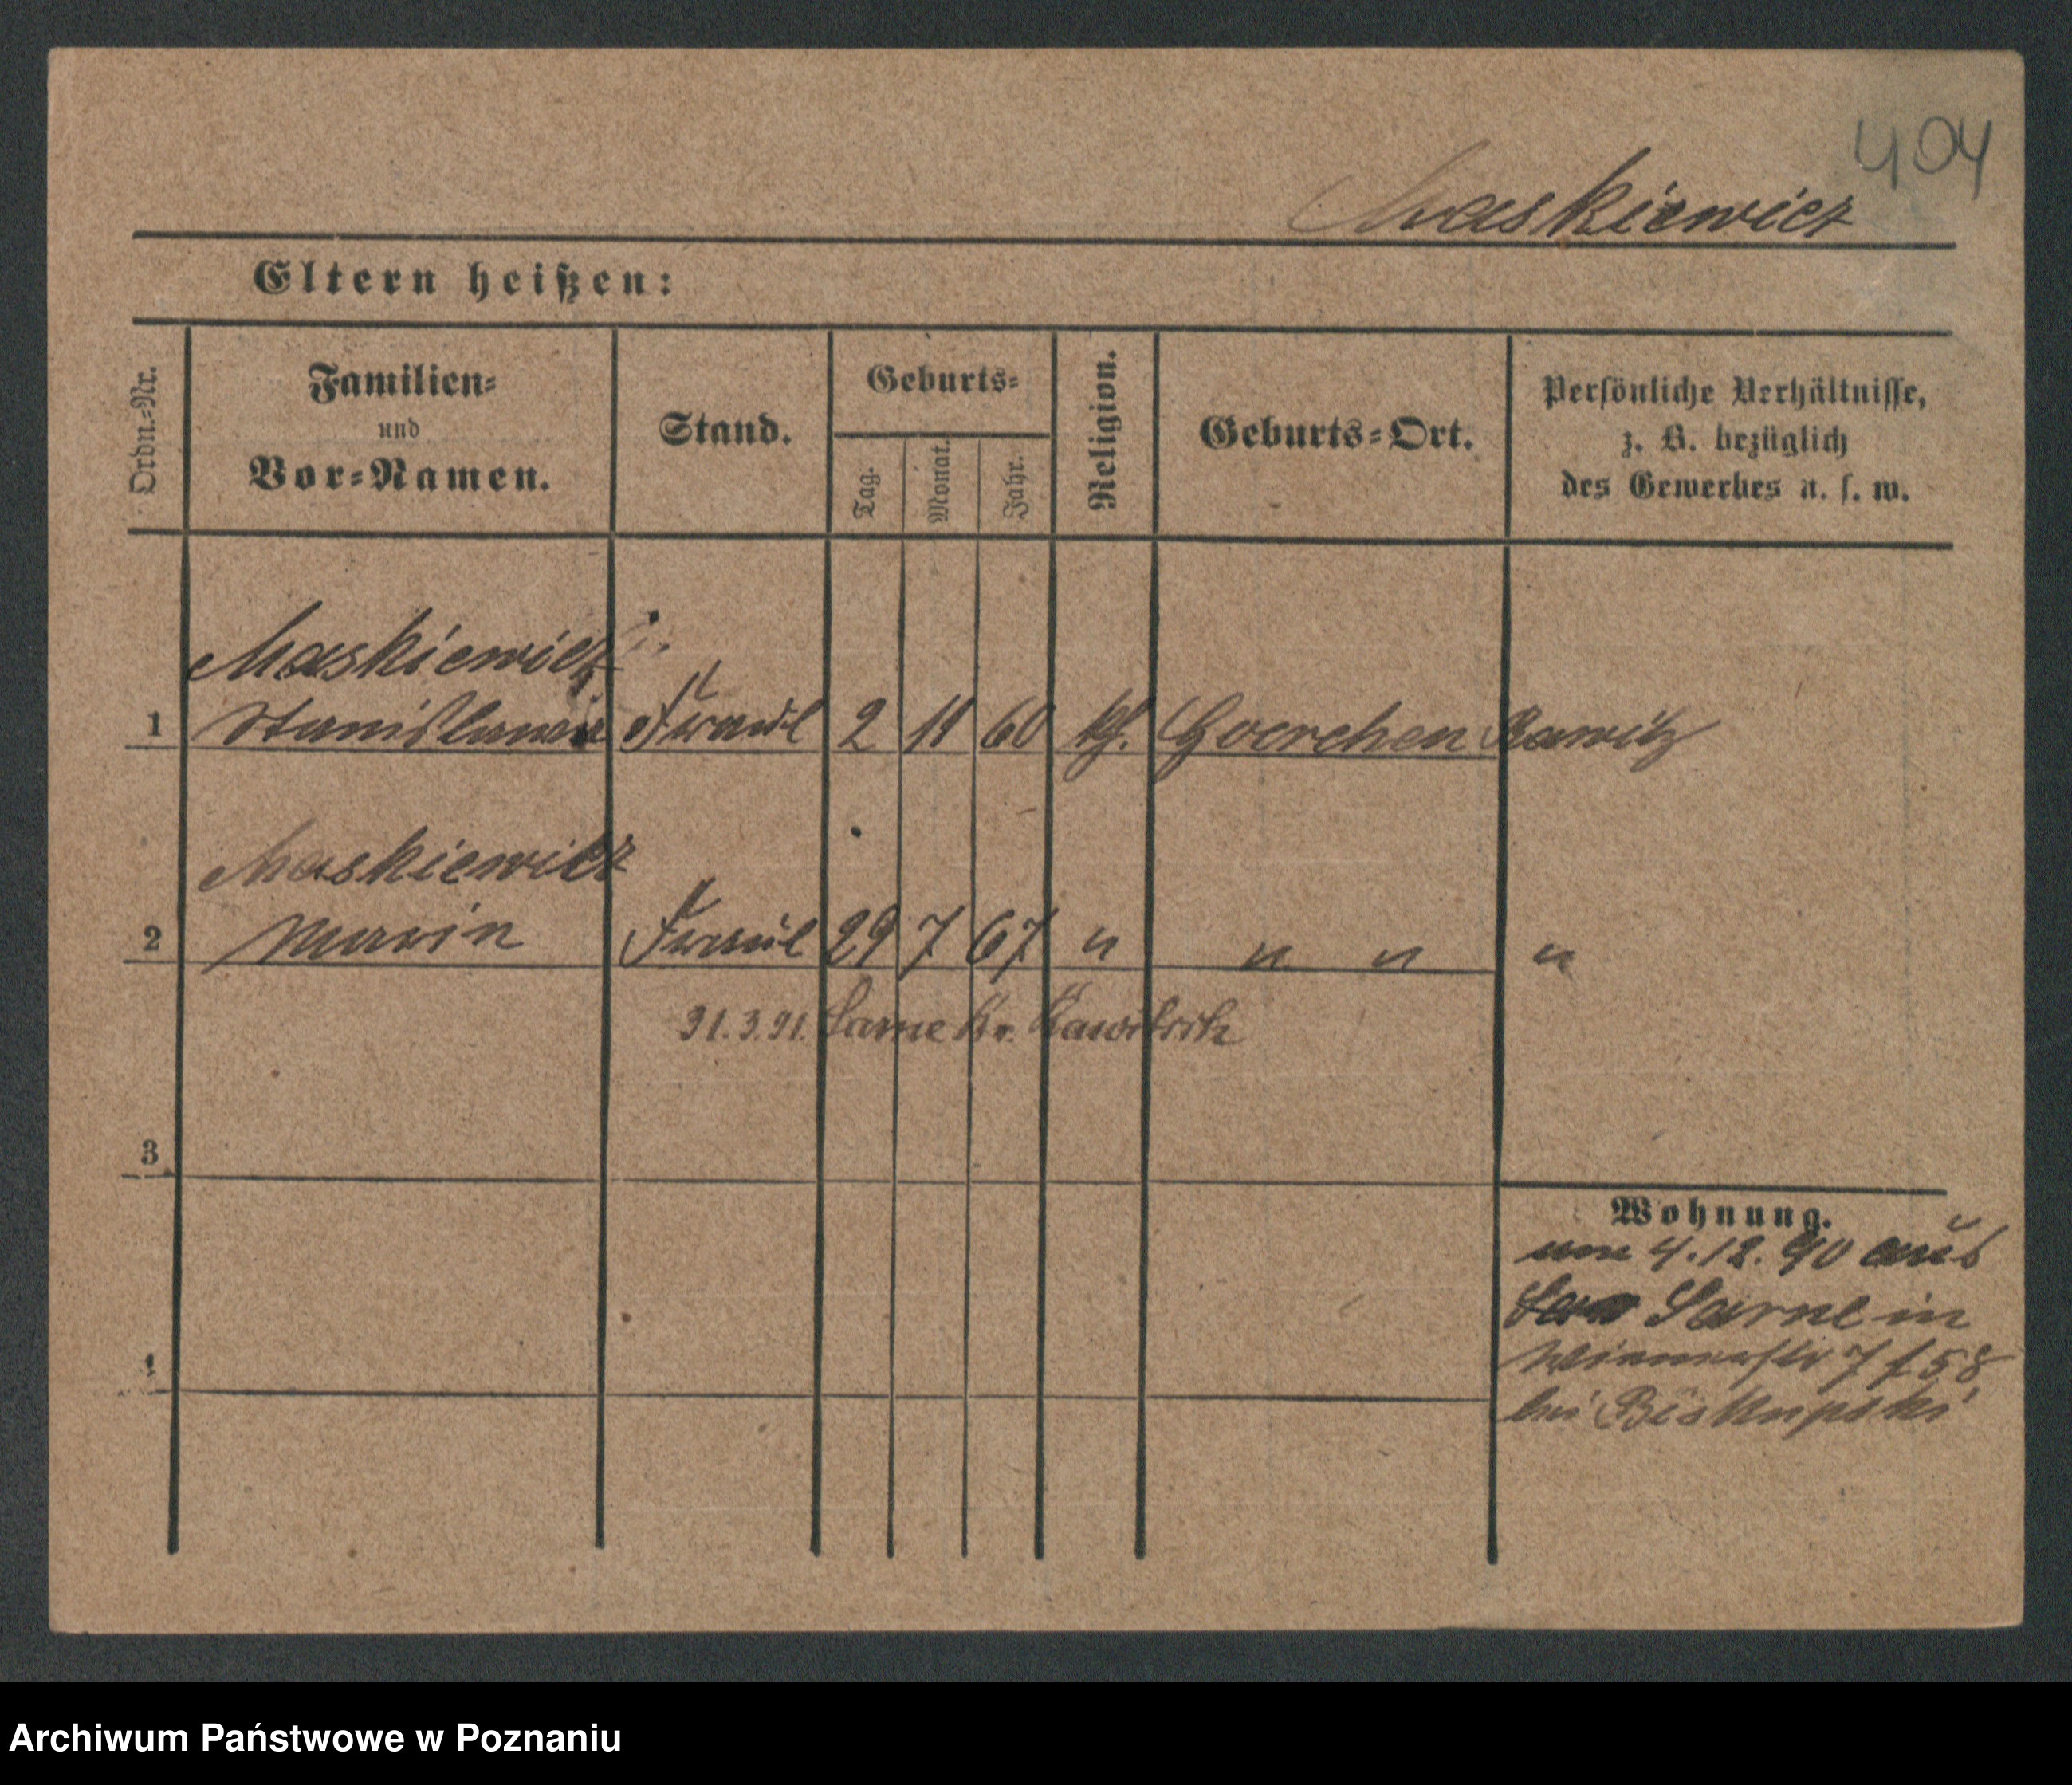 404
Maskiewicz
Eltern heißen:
Ordn.-Nr.
Familien-
und
Vor-Namen.
Stand.
Geburts-
Tag.
Monat.
Jahr.
Religion.
Geburts-Ort.
Persönliche Verhältnisse,
z. B. bezüglich
des Gewerbes u. s. w.
Maskiewicz
1 Stanislawa Fraul 2 11 60 kh. Goerchen Rawitz
Maskiewicz
2 Marin Fraul 29 7 67 " " " "
31.3.91. Sarne Kr.
3
Wohnung.
am 4.12.90 aus
Sarne in
7 f 58
bei Biskupski
4
Archiwum Państwowe w Poznaniu